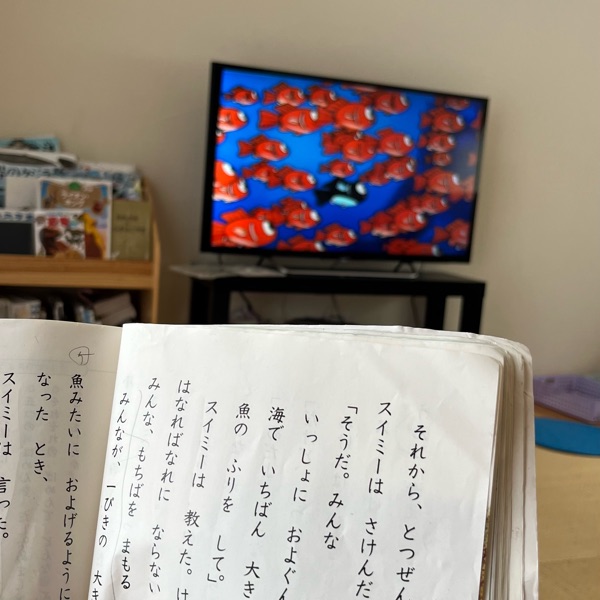 それから、とつぜん
スイミーは さけんだ
「そうだ。みんな
いっしょに およぐん
海で いちばん 大き
魚の ふりを して。」
スイミーは 教えた。け
はなればなれに ならない
みんな、もちばを まもる
みんなが、一ぴきの 大き
魚みたいに およげるように
なった とき、
スイミーは 言った。